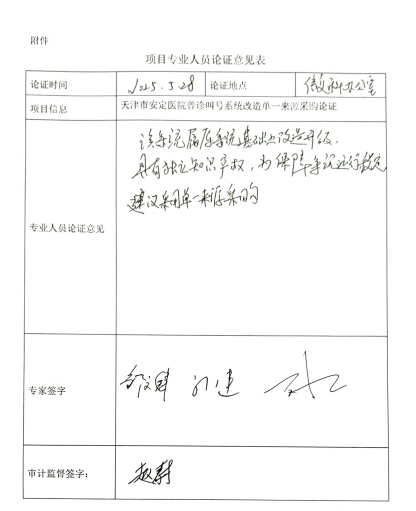 附件
项目专业人员论证意见表
论证时间 2025.3.28 论证地点 信息科办公室
项目信息 天津市安定医院普诊叫号系统改造单一来源采购论证
专业人员论证意见
该系统属原系统基础上改造升级,
具有独立知识产权,为保障系统运行稳定
建议采用单一来源采购
专家签字
审计监督签字: